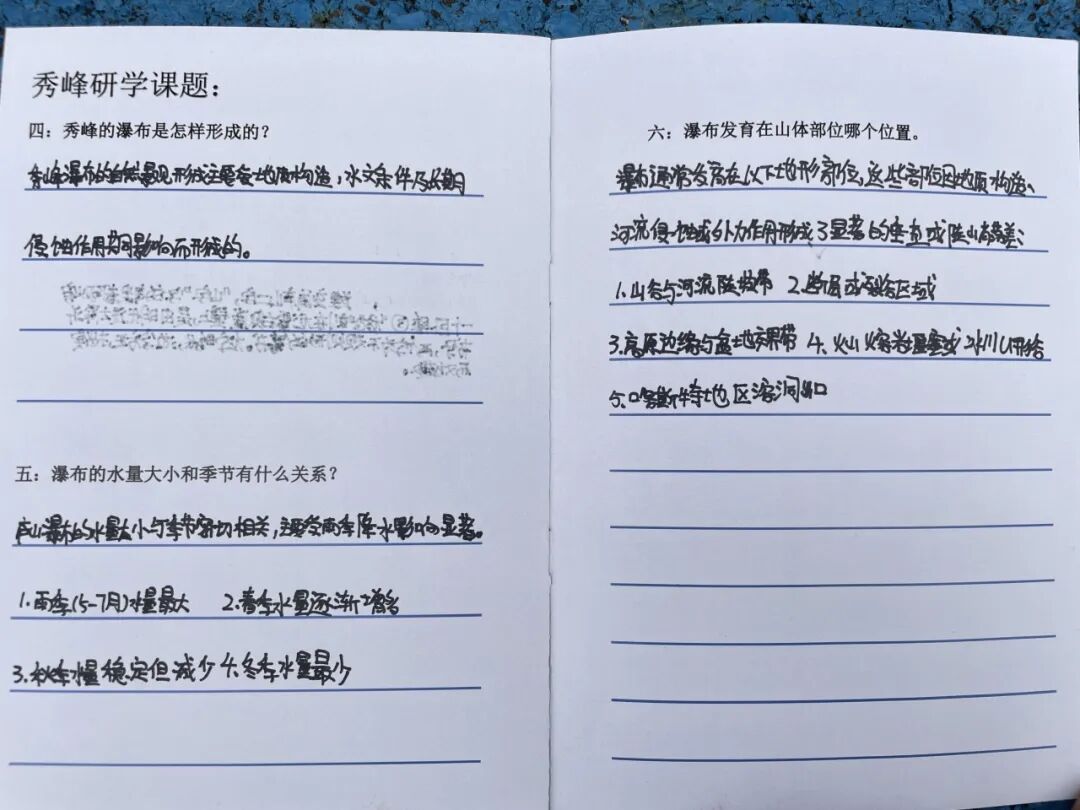 秀峰研学课题：
四：秀峰的瀑布是怎样形成的？
秀峰瀑布的自然景见形成主要受地质构造，水文条件及长期
侵蚀作用共同影响而形成的。
五：瀑布的水量大小和季节有什么关系？
庐山瀑布的水量大小与季节密切相关，主要受雨季降水影响显著。
1.雨季(5-7月)水量最大 2.春季水量逐渐增多
3.秋季水量稳定但减少 4.冬季水量最少
六：瀑布发育在山体部位哪个位置。
瀑布通常发育在以下地形部位，这些部位因地质构造、
河流侵蚀或外力作用形成了显著的垂直或陡山落差：
1.山谷与河流陡坡带 2.断层或裂谷区域
3.高原边缘与盆地交界带 4、火山熔岩堰塞或冰川U形谷
5、喀斯特地区溶洞出口